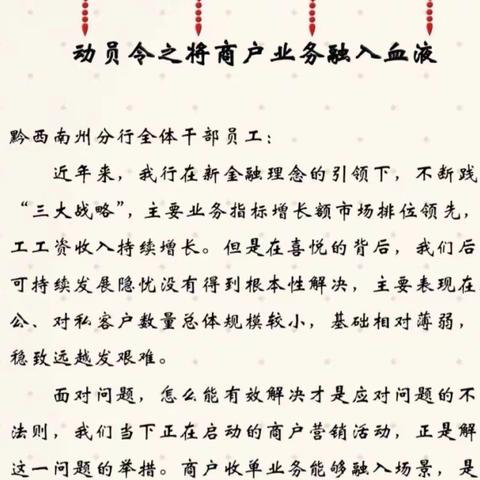 动员令之将商户业务融入血液
黔西南州分行全体干部员工：
近年来，我行在新金融理念的引领下，不断践
“三大战略”，主要业务指标增长额市场排位领先，
工工资收入持续增长。但是在喜悦的背后，我们后
可持续发展隐忧没有得到根本性解决，主要表现在
公、对私客户数量总体规模较小，基础相对薄弱，
稳致远越发艰难。
面对问题，怎么能有效解决才是应对问题的不
法则，我们当下正在启动的商户营销活动，正是解
这一问题的举措。商户收单业务能够融入场景，是